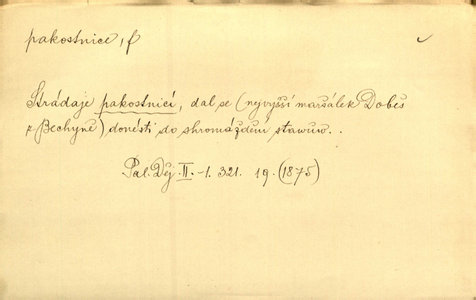 pakostnice, f
Strádaje pakostnicí, dal se (nejvyšší maršálek Dobeš
z Bechyně) donésti do shromáždění stawůw..
Pal. Děj. II.-1. 321. 19. (1875)